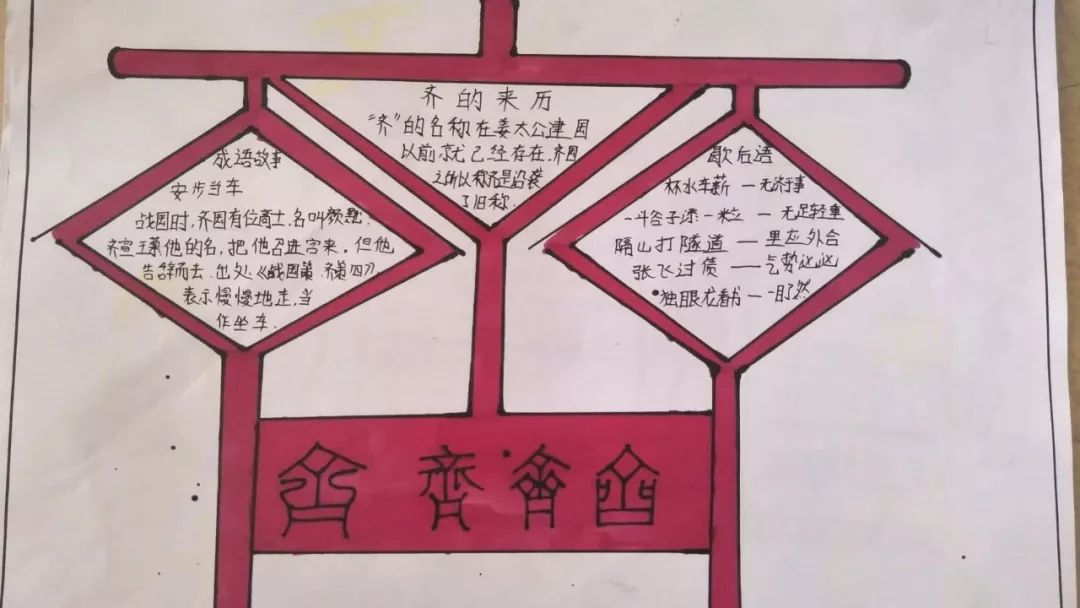 齐的来历
“齐”的名称在姜太公建国
以前就已经存在.齐国
之所以称齐是沿袭
了旧称.
成语故事
安步当车
战国时,齐国有位高士,名叫颜斶,
齐宣王慕他的名,把他召进宫来.但他
告辞而去.出处《战国策.齐策四》.
表示慢慢地走,当
作坐车.
歇后语
杯水车薪—无济于事
一斗谷子添一粒—无足轻重
隔山打隧道—里应外合
张飞讨债—气势汹汹
独眼龙看书—一目了然
齊